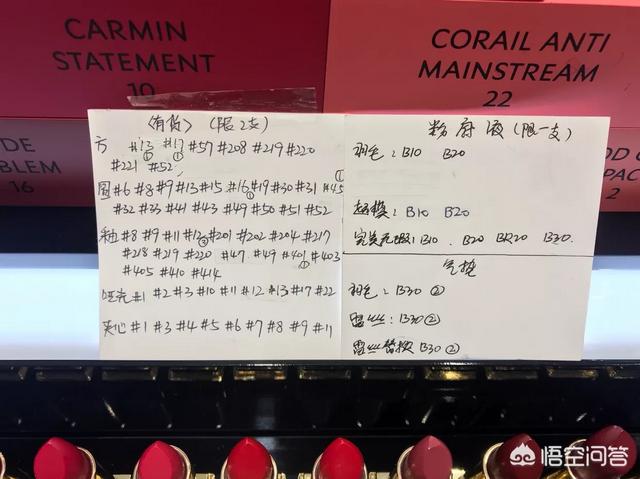 CARMIN
STATEMENT
10
CORAIL ANTI
MAINSTREAM
22
DE
BLEM
16
2
(有货) (限2支)
方 #13① #17① #57 #208 #219 #220
#221 #52
圆 #6 #8 #9 #13 #15 #16① #19 #30 #31 #45①
#32 #33 #41 #43 #49 #50 #51 #52
#8 #9 #11 #12② #201 #202 #204 #217
#218 #219 #220 #47 #49 #401① #403
#405 #410 #414
#1 #2 #3 #10 #11 #12 #13 #17 #22
夹心 #1 #3 #4 #5 #6 #7 #8 #9 #11
粉底液(限一支)
羽毛: B10 B20
超模: B10 B20
完美无瑕: B10. B20 BR20 B30.
气垫
羽毛: B30②
蕾丝: B30②
蕾丝替换 B30②
悟空问答